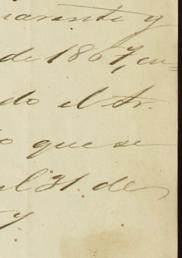 narenta y
de 1867, cu-
do el Sr.
o que se
el 31. de
y.